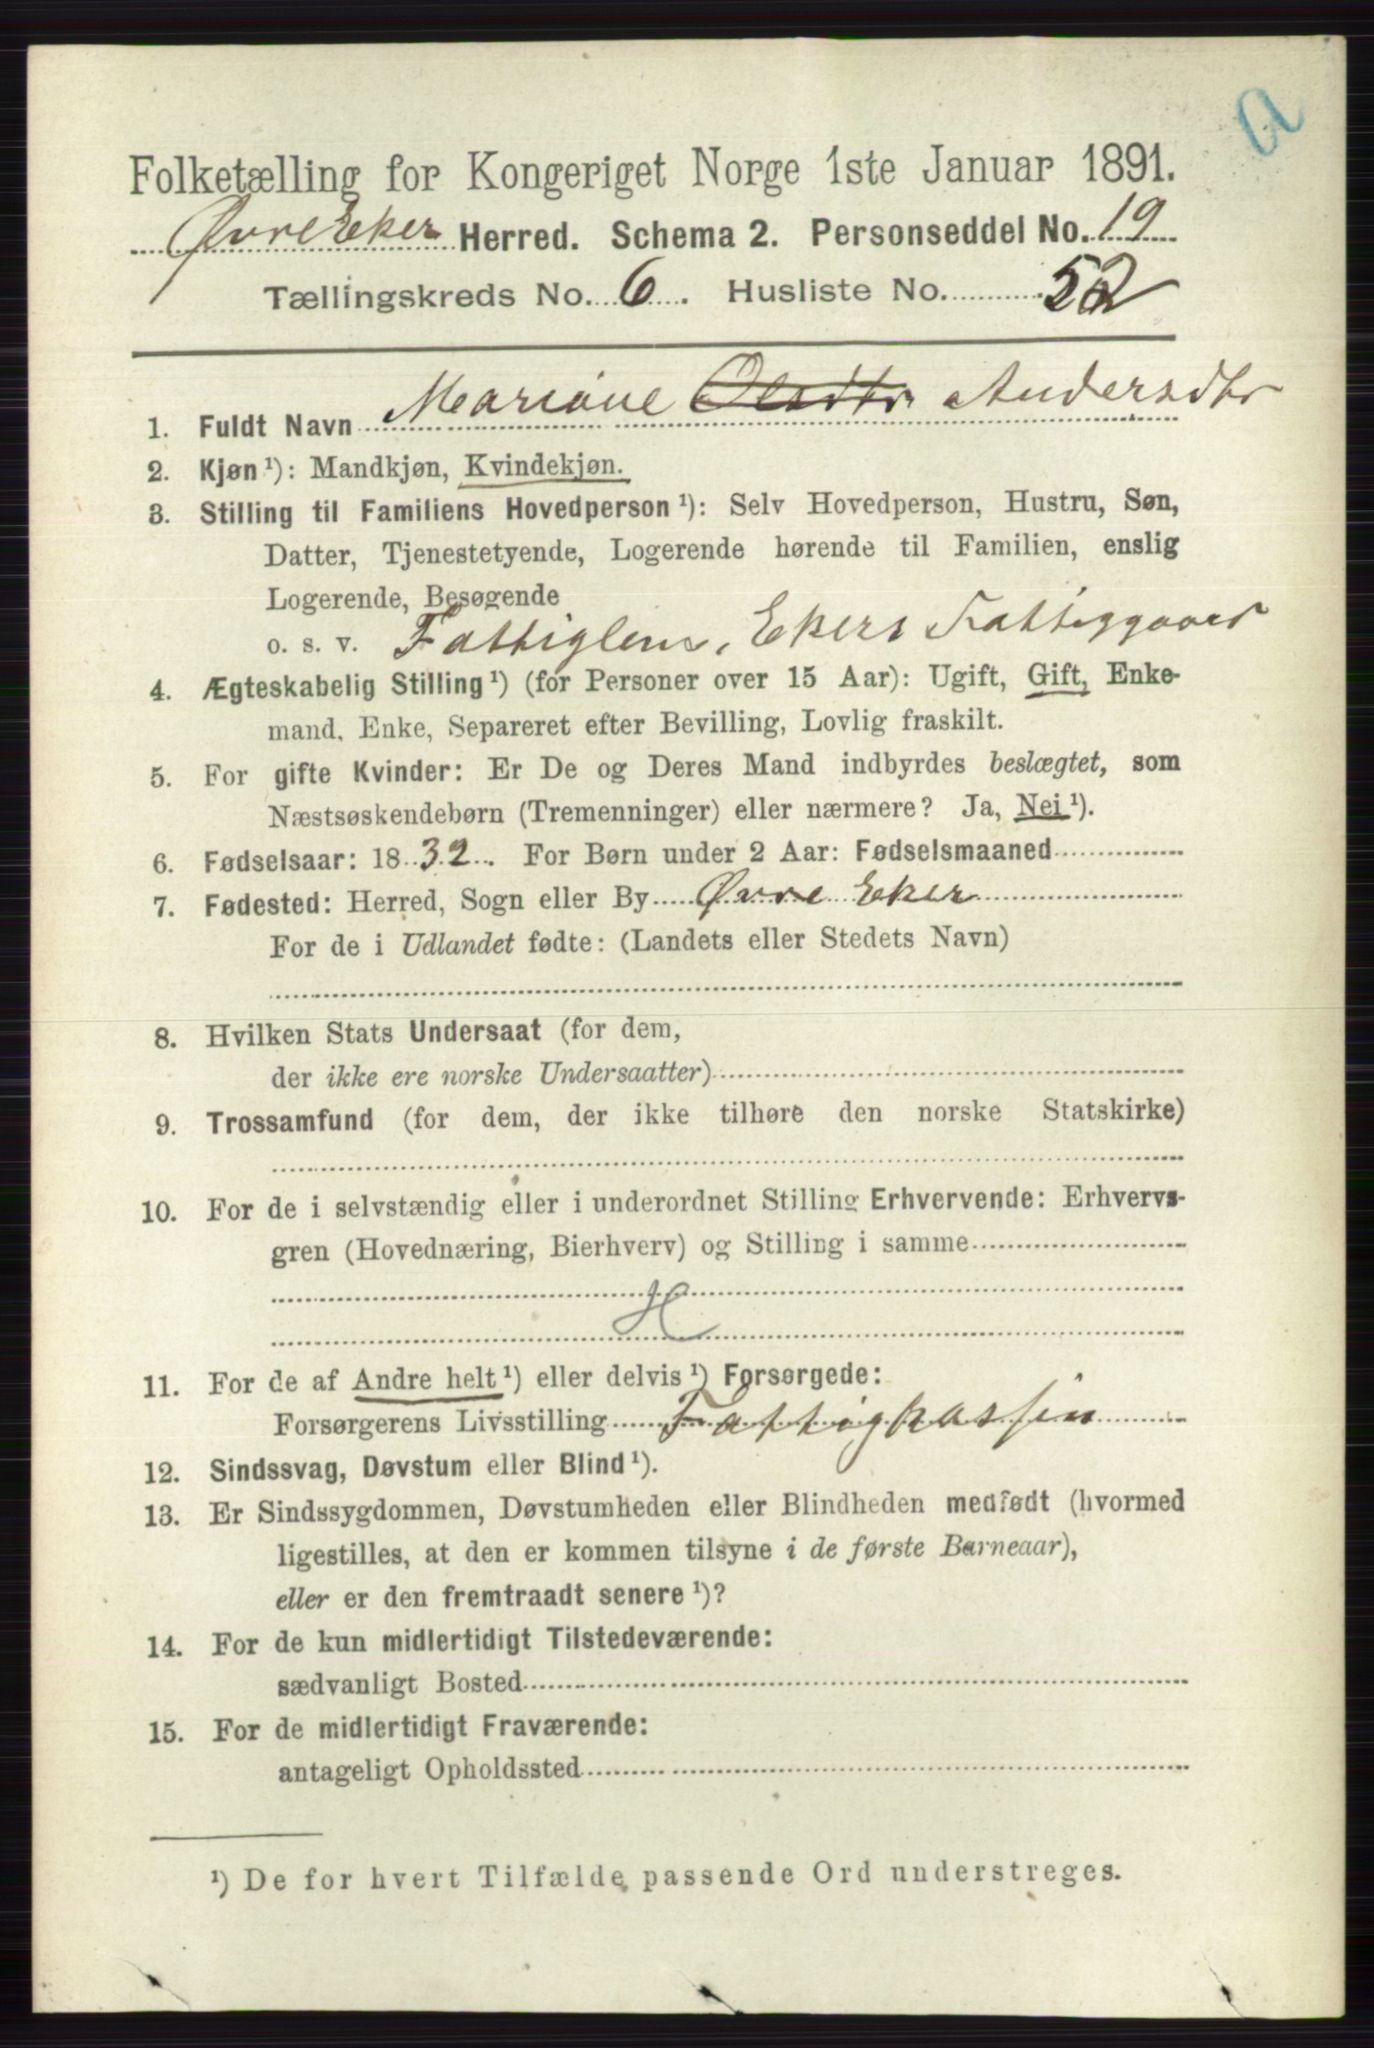 a
Folketælling for Kongeriget Norge 1ste Januar 1891.
Øvre Eker Herred. Schema 2. Personseddel No. 19
Tællingskreds No. 6. Husliste No. 52
1. Fuldt Navn Mariane Olsdtr Andersdtr
2. Kjøn ¹): Mandkjøn, Kvindekjøn.
3. Stilling til Familiens Hovedperson ¹): Selv Hovedperson, Hustru, Søn,
Datter, Tjenestetyende, Logerende hørende til Familien, enslig
Logerende, Besøgende
o. s. v. Fattiglem, Ekers Fattiggaard
4. Ægteskabelig Stilling ¹) (for Personer over 15 Aar): Ugift, Gift, Enke-
mand, Enke, Separeret efter Bevilling, Lovlig fraskilt.
5. For gifte Kvinder: Er De og Deres Mand indbyrdes beslægtet, som
Næstsøskendebørn (Tremenninger) eller nærmere? Ja, Nei ¹).
6. Fødselsaar: 1832. For Børn under 2 Aar: Fødselsmaaned
7. Fødested: Herred, Sogn eller By Øvre Eker
For de i Udlandet fødte: (Landets eller Stedets Navn)
8. Hvilken Stats Undersaat (for dem,
der ikke ere norske Undersaatter)
9. Trossamfund (for dem, der ikke tilhøre den norske Statskirke)
10. For de i selvstændig eller i underordnet Stilling Erhvervende: Erhvervs-
gren (Hovednæring, Bierhverv) og Stilling i samme
H
11. For de af Andre helt ¹) eller delvis ¹) Forsørgede:
Forsørgerens Livsstilling Fattigkassen
12. Sindssvag, Døvstum eller Blind ¹).
13. Er Sindssygdommen, Døvstumheden eller Blindheden medfødt (hvormed
ligestilles, at den er kommen tilsyne i de første Barneaar),
eller er den fremtraadt senere ¹)?
14. For de kun midlertidigt Tilstedeværende:
sædvanligt Bosted
15. For de midlertidigt Fraværende:
antageligt Opholdssted
¹) De for hvert Tilfælde passende Ord understreges.